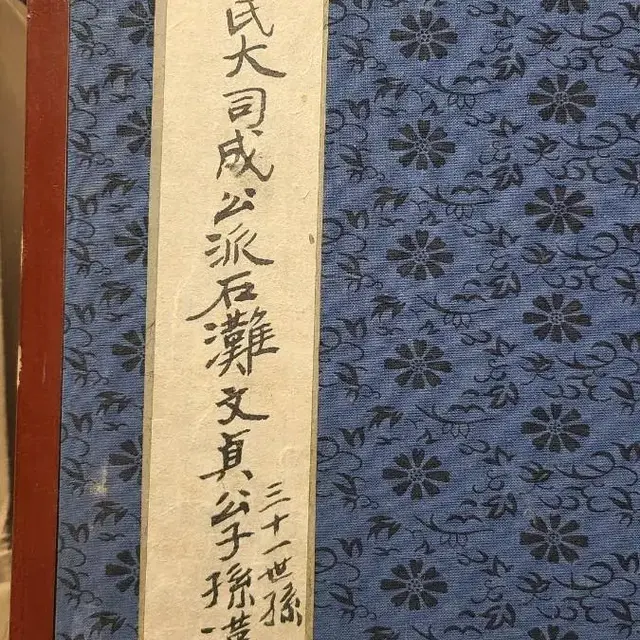 氏大司成公派石灘文貞公子孫
三十一世孫